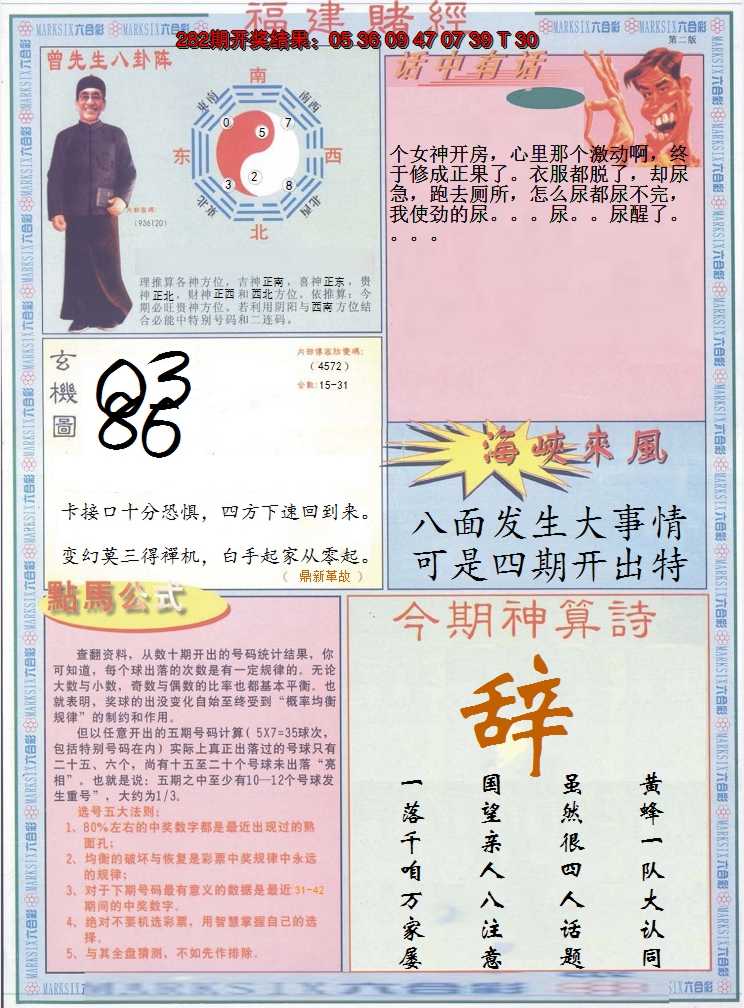 福建賭經
MARKSIX六合彩 MARKSIX六合彩 MARKSIX六合彩 MARKSIX六合彩
282期开奖结果：05 36 09 47 07 39 T 30
第二版
曾先生八卦阵
南
东南
西南
0
5
7
东
西
3
2
8
東北
西北
北
内部玄碼：
(936120)
理推算各神方位，吉神正南，喜神正东，贵
神正北，财神正西和西北方位。依推算：今
期必旺贵神方位。若利用阴阳与西南方位结
合必能中特别号码和二连码。
话中有话
个女神开房，心里那个激动啊，终
于修成正果了。衣服都脱了，却尿
急，跑去厕所，怎么尿都尿不完，
我使劲的尿。。。尿。。尿醒了。
。。。
玄機圖
03
86
内部傳密防變碼：
（4572）
合数：15-31
卡接口十分恐惧，四方下速回到来。
变幻莫三得禪机，白手起家从零起。
（ 鼎新革故 ）
海峽來風
八面发生大事情
可是四期开出特
點馬公式
查翻资料，从数十期开出的号码统计结果，你
可知道，每个球出落的次数是有一定规律的。无论
大数与小数，奇数与偶数的比率也都基本平衡。也
就表明，奖球的出没变化自始至终受到“概率均衡
规律”的制约和作用。
但以任意开出的五期号码计算( 5X7=35球次，
包括特别号码在内) 实际上真正出落过的号球只有
二十五、六个，尚有十五至二十个号球未出落“亮
相”。也就是说：五期之中至少有10—12个号球发
生重号”，大约为1/3。
选号五大法则：
1、80%左右的中奖数字都是最近出现过的熟
面孔；
2、均衡的破坏与恢复是彩票中奖规律中永远
的规律；
3、对于下期号码最有意义的数据是最近 31-42
期间的中奖数字。
4、绝对不要机选彩票，用智慧掌握自己的选
择。
5、与其全盘猜测，不如先作排除。
今期神算詩
辞
黄蜂一队大认同
虽然很四人话题
国望亲人八注意
一落千咱万家屡